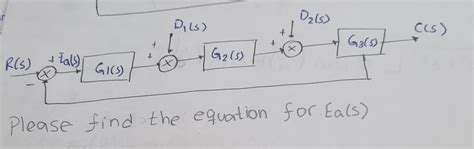 D₁(s) D₂(s)
R(s) + Ea(s) G₁(s) + + G₂(s) + + G₃(s) C(s)
−
Please find the equation for Ea(s)